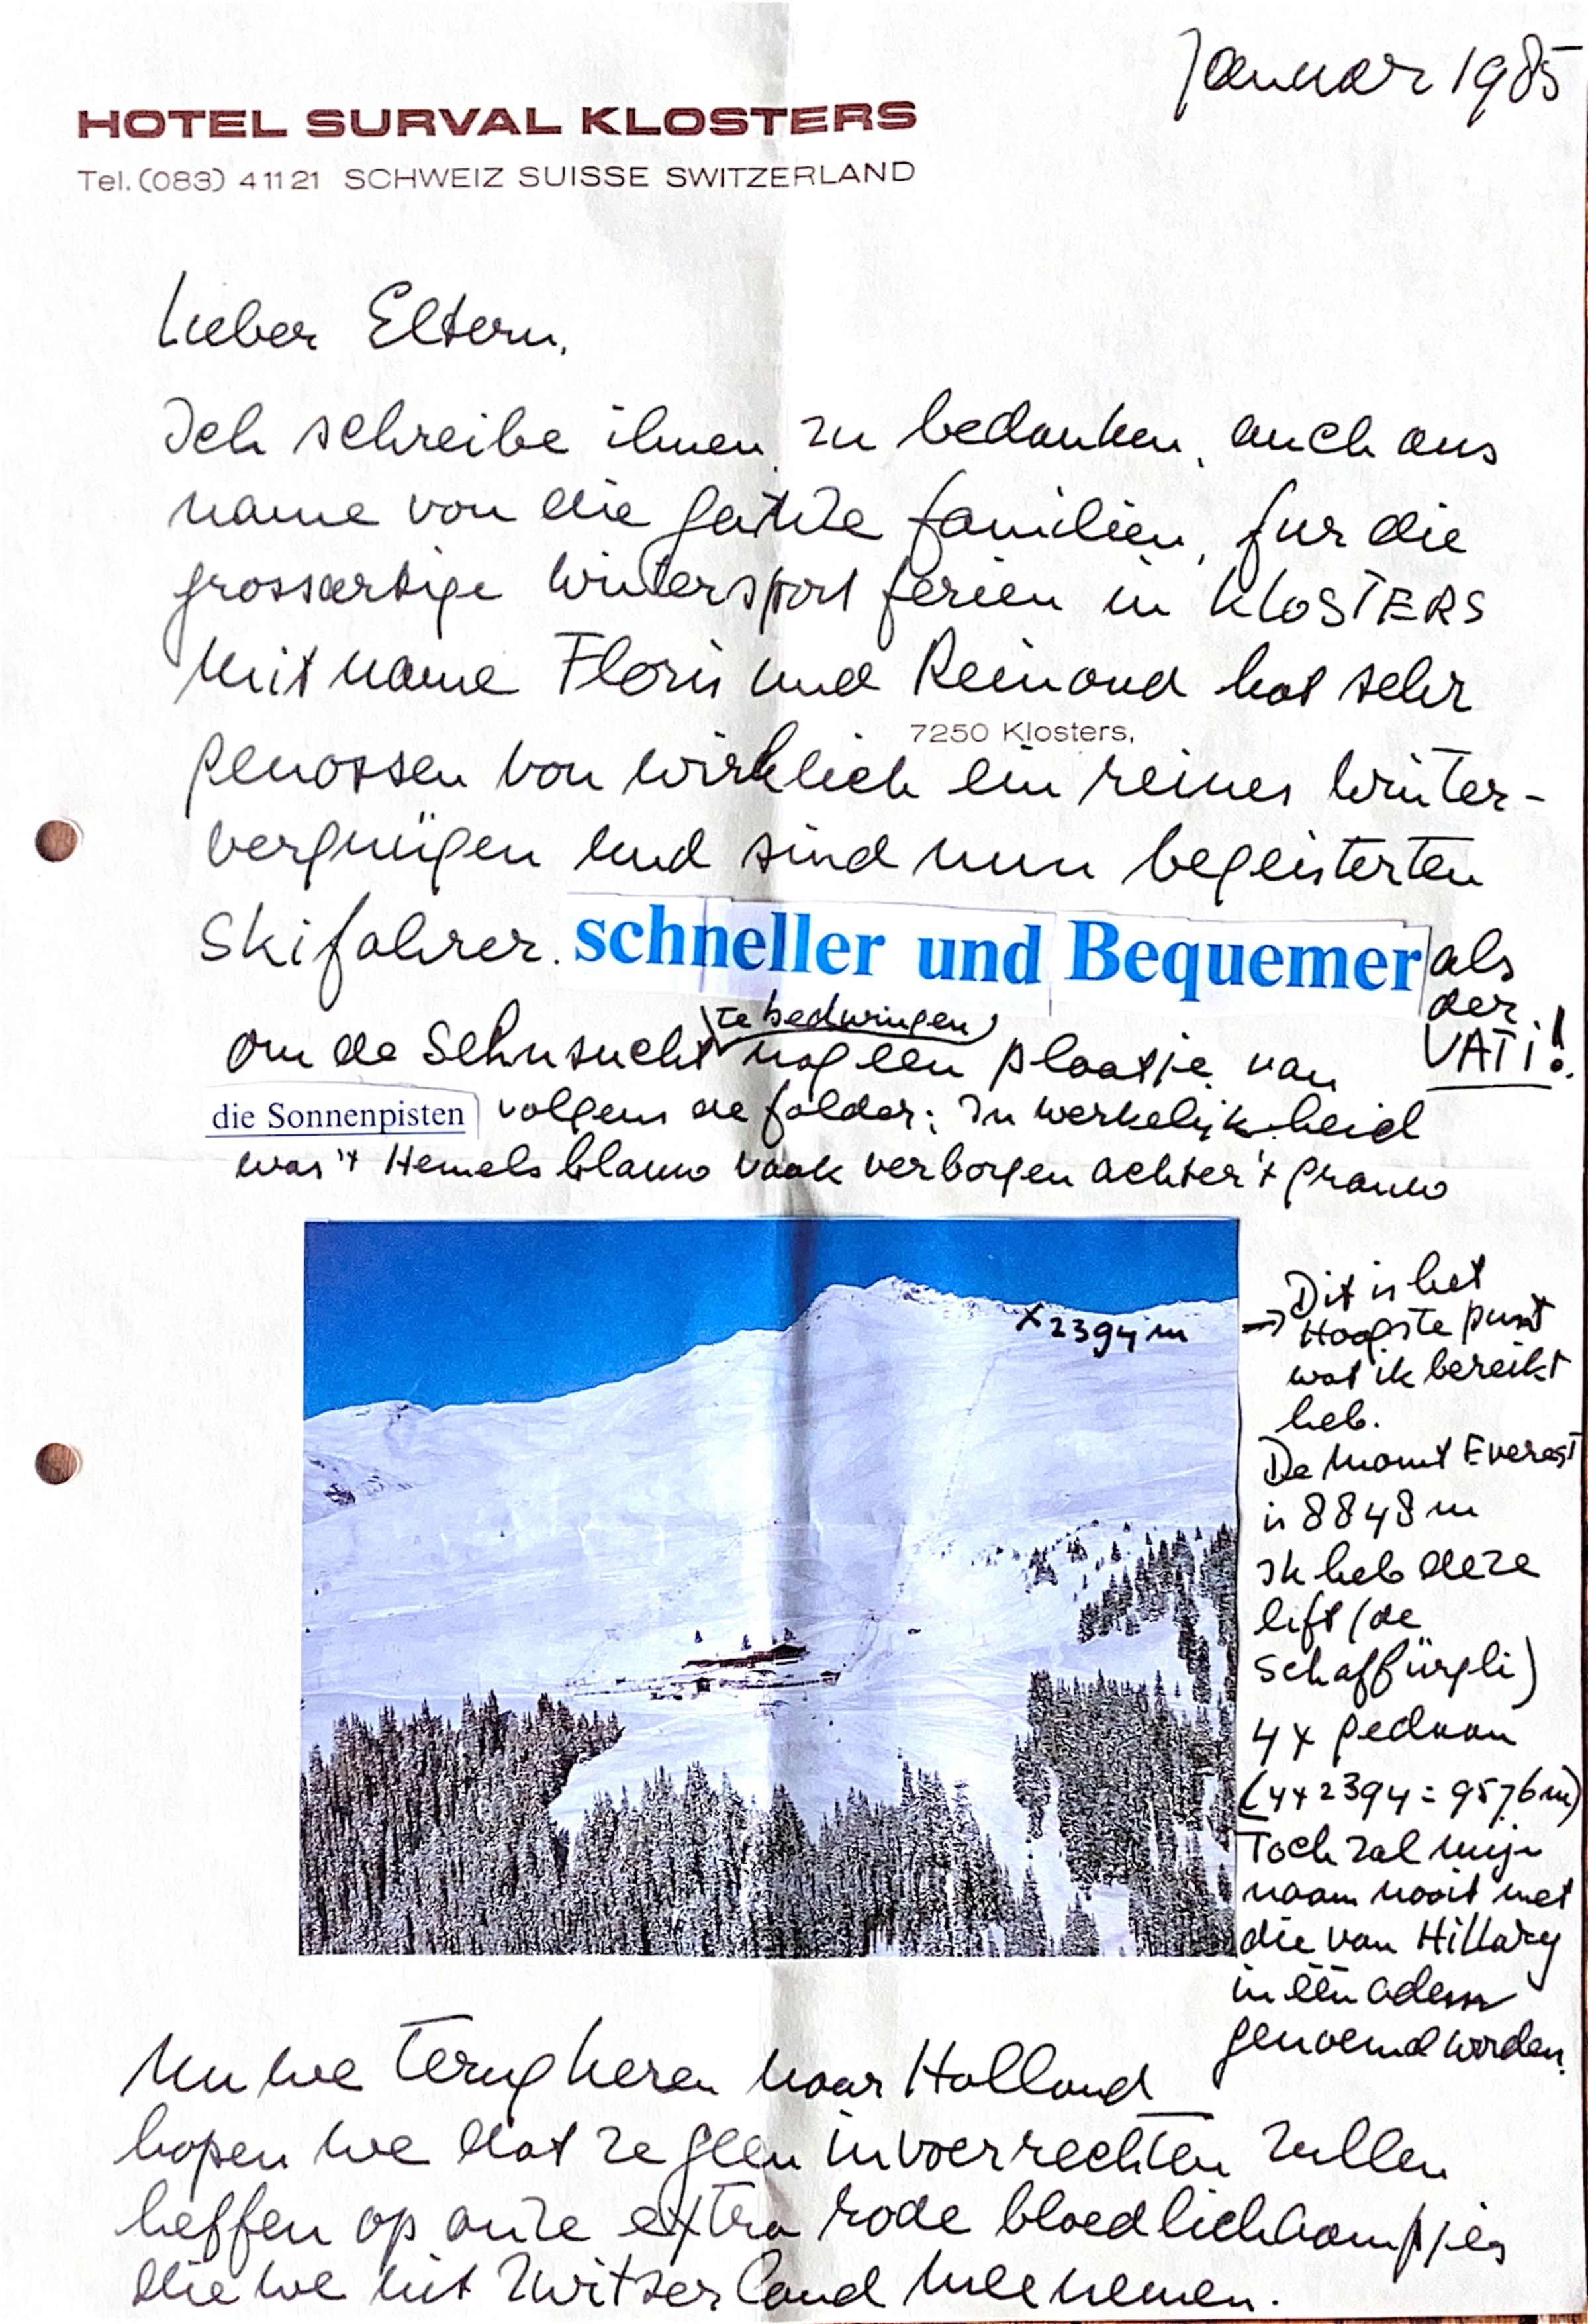 Januar 1985
HOTEL SURVAL KLOSTERS
Tel. (083) 4 11 21 SCHWEIZ SUISSE SWITZERLAND
Lieber Eltern,
Ich schreibe ihnen zu bedanken, auch aus
name von die gantze familien, fur die
grossartige Wintersport ferien in KLOSTERS
Mit name Floris und Reinoud hat sehr
7250 Klosters,
genossen von wirklich ein reines Winter-
vergnügen und sind nun begeisterten
Skifahrer. schneller und Bequemer als
der
VATI!
te bedwingen
om de Sehnsucht nog een plaatje van
die Sonnenpisten volgens de folder: In werkelijkheid
was 't Hemels blauw vaak verborgen achter 't grauw
x 2394 m
→ Dit is het
Hoogste punt
wat ik bereikt
heb.
De Mount Everest
is 8848 m
Ik heb deze
lift (de
Schaffürgli)
4x gedaan
(4x2394 = 9576 m)
Toch zal mijn
naam nooit met
die van Hillary
in één adem
genoemd worden.
Nu we terugkeren naar Holland
hopen we dat ze geen invoerrechten zullen
heffen op onze extra rode bloedlichaampjes
die we uit Zwitserland meenemen.